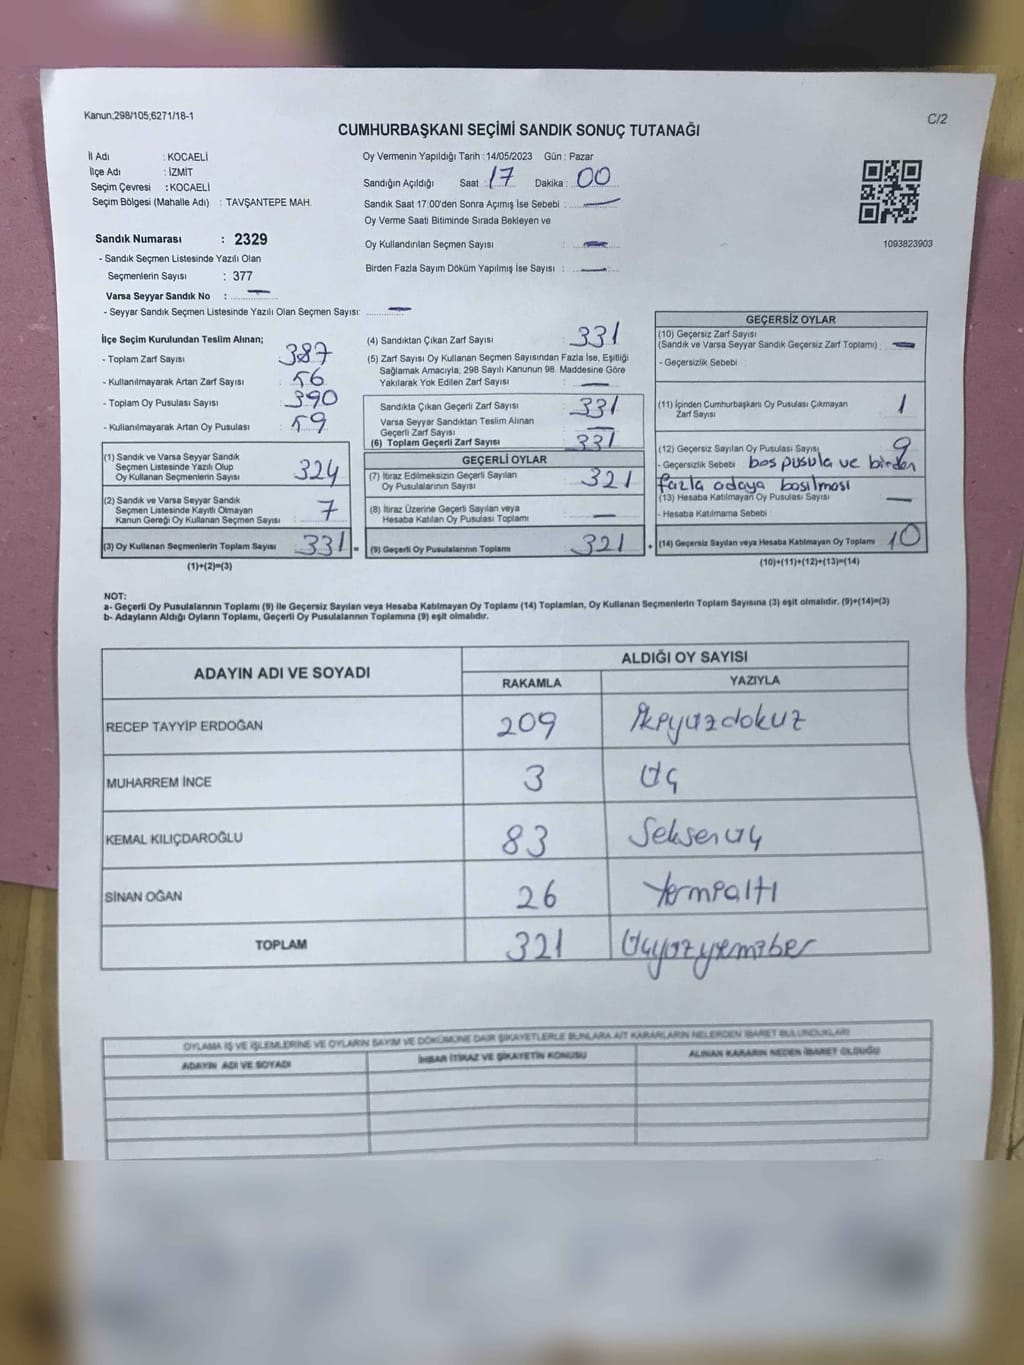 Kanun;298/105;6271/18-1
C/2
CUMHURBAŞKANI SEÇİMİ SANDIK SONUÇ TUTANAĞI
İl Adı : KOCAELİ
İlçe Adı : İZMİT
Seçim Çevresi : KOCAELİ
Seçim Bölgesi (Mahalle Adı) : TAVŞANTEPE MAH.
Sandık Numarası : 2329
- Sandık Seçmen Listesinde Yazılı Olan
Seçmenlerin Sayısı : 377
Varsa Seyyar Sandık No :
- Seyyar Sandık Seçmen Listesinde Yazılı Olan Seçmen Sayısı:
Oy Vermenin Yapıldığı Tarih :14/05/2023 Gün : Pazar
Sandığın Açıldığı Saat : 17 Dakika : 00
Sandık Saat 17:00'den Sonra Açımış İse Sebebi :
Oy Verme Saati Bitiminde Sırada Bekleyen ve
Oy Kullandırılan Seçmen Sayısı :
Birden Fazla Sayım Döküm Yapılmış İse Sayısı :
1093823903
İlçe Seçim Kurulundan Teslim Alınan;
- Toplam Zarf Sayısı : 387
- Kullanılmayarak Artan Zarf Sayısı : 56
- Toplam Oy Pusulası Sayısı : 390
- Kullanılmayarak Artan Oy Pusulası : 59
(1) Sandık ve Varsa Seyyar Sandık
Seçmen Listesinde Yazılı Olup
Oy Kullanan Seçmenlerin Sayısı 324
(2) Sandık ve Varsa Seyyar Sandık
Seçmen Listesinde Kayıtlı Olmayan
Kanun Gereği Oy Kullanan Seçmen Sayısı 7
(3) Oy Kullanan Seçmenlerin Toplam Sayısı 331 =
(1)+(2)=(3)
(4) Sandıktan Çıkan Zarf Sayısı : 331
(5) Zarf Sayısı Oy Kullanan Seçmen Sayısından Fazla İse, Eşitliği
Sağlamak Amacıyla, 298 Sayılı Kanunun 98. Maddesine Göre
Yakılarak Yok Edilen Zarf Sayısı :
Sandıkta Çıkan Geçerli Zarf Sayısı : 331
Varsa Seyyar Sandıktan Teslim Alınan
Geçerli Zarf Sayısı :
(6) Toplam Geçerli Zarf Sayısı : 331
GEÇERLİ OYLAR
(7) İtiraz Edilmeksizin Geçerli Sayılan
Oy Pusulalarının Sayısı : 321
(8) İtiraz Üzerine Geçerli Sayılan veya
Hesaba Katılan Oy Pusulası Toplamı :
(9) Geçerli Oy Pusulalarının Toplamı : 321 +
GEÇERSİZ OYLAR
(10) Geçersiz Zarf Sayısı
(Sandık ve Varsa Seyyar Sandık Geçersiz Zarf Toplamı) :
- Geçersizlik Sebebi :
(11) İçinden Cumhurbaşkanı Oy Pusulası Çıkmayan
Zarf Sayısı 1
(12) Geçersiz Sayılan Oy Pusulası Sayısı 9
- Geçersizlik Sebebi : boş pusula ve birden
fazla adaya basılması
(13) Hesaba Katılmayan Oy Pusulası Sayısı :
- Hesaba Katılmama Sebebi :
(14) Geçersiz Sayılan veya Hesaba Katılmayan Oy Toplamı : 10
(10)+(11)+(12)+(13)=(14)
NOT:
a- Geçerli Oy Pusulalarının Toplamı (9) ile Geçersiz Sayılan veya Hesaba Katılmayan Oy Toplamı (14) Toplamları, Oy Kullanan Seçmenlerin Toplam Sayısına (3) eşit olmalıdır. (9)+(14)=(3)
b- Adayların Aldığı Oyların Toplamı, Geçerli Oy Pusulalarının Toplamına (9) eşit olmalıdır.
ADAYIN ADI VE SOYADI ALDIĞI OY SAYISI
RAKAMLA YAZIYLA
RECEP TAYYİP ERDOĞAN 209 İkiyüzdokuz
MUHARREM İNCE 3 Üç
KEMAL KILIÇDAROĞLU 83 Seksenüç
SİNAN OĞAN 26 Yirmialtı
TOPLAM 321 Üçyüzyirmibir
OYLAMA İŞ VE İŞLEMLERİNE VE OYLARIN SAYIM VE DÖKÜMÜNE DAİR ŞİKAYETLERLE BUNLARA AİT KARARLARIN NELERDEN İBARET BULUNDUKLARI
ADAYIN ADI VE SOYADI İHBAR İTİRAZ VE ŞİKAYETİN KONUSU ALINAN KARARIN NEDEN İBARET OLDUĞU